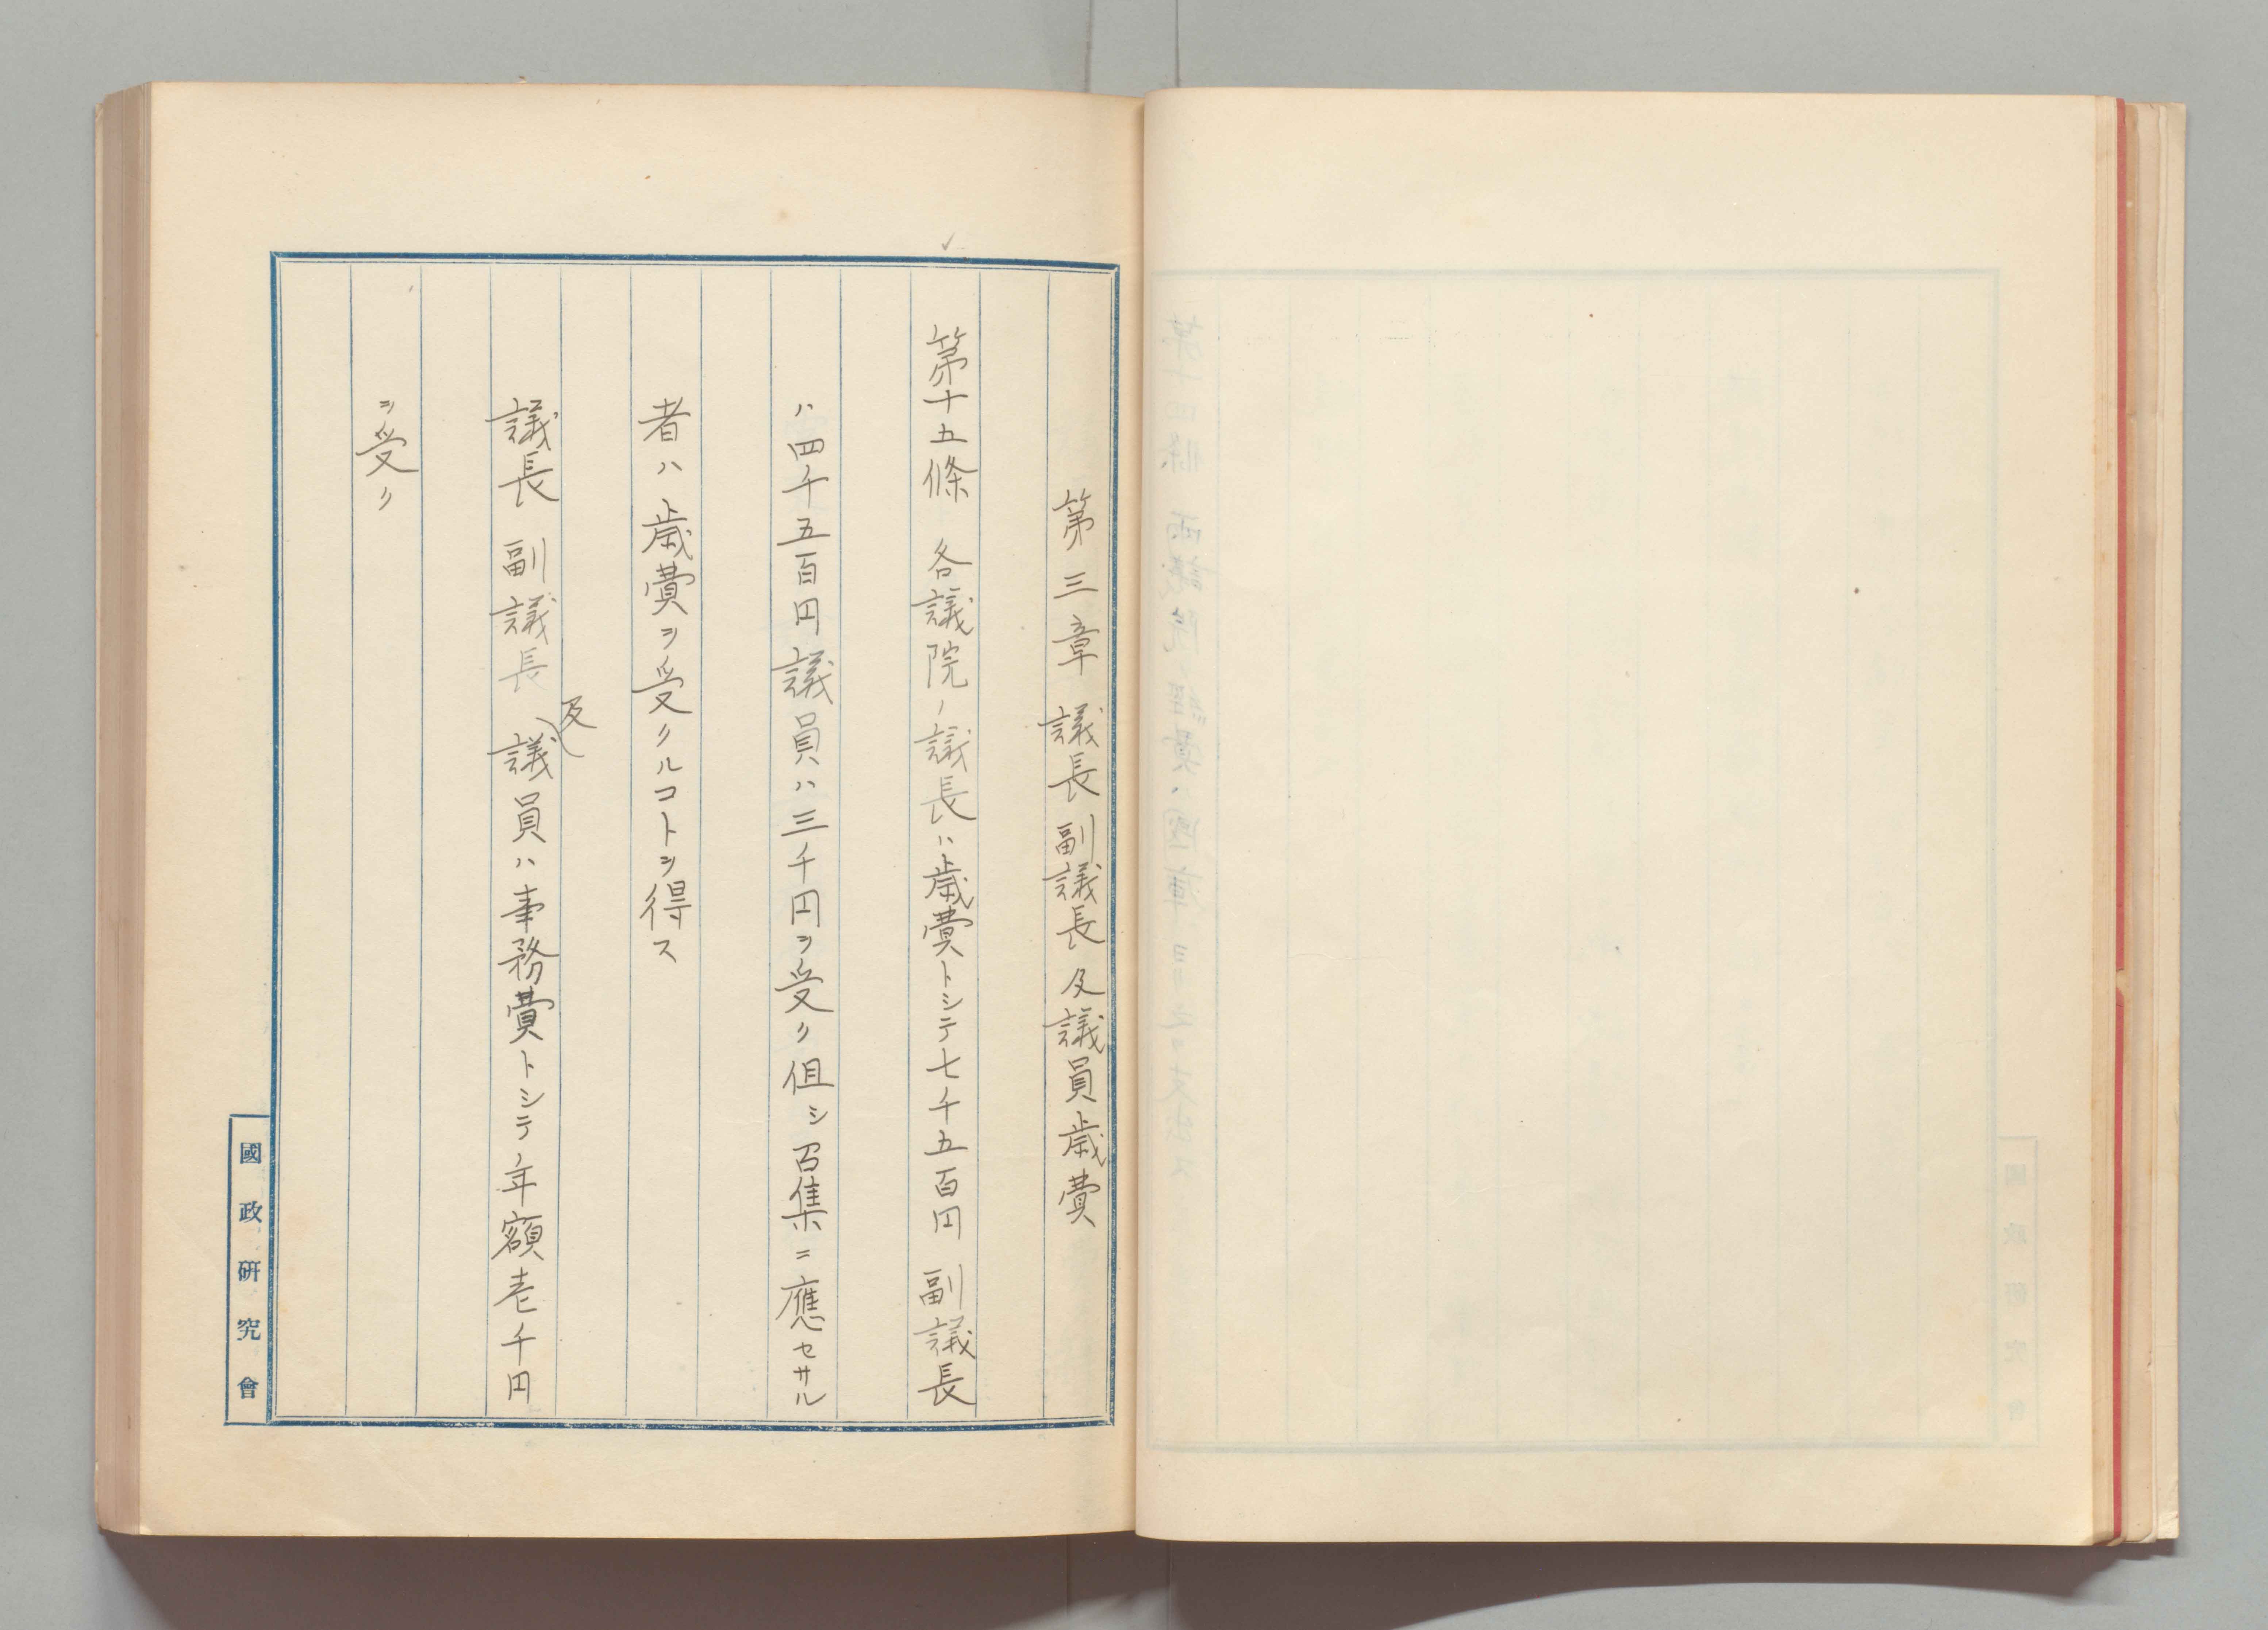 第三章 議長副議長及議員歳費
第十五條 各議院ノ議長ハ歳費トシテ七千五百円 副議長
ハ四千五百円議員ハ三千円ヲ受ク但シ召集ニ應セサル
者ハ歳費ヲ受クルコトヲ得ス
議長 副議長 及議員ハ事務費トシテ年額壱千円
ヲ受ク
國政研究會